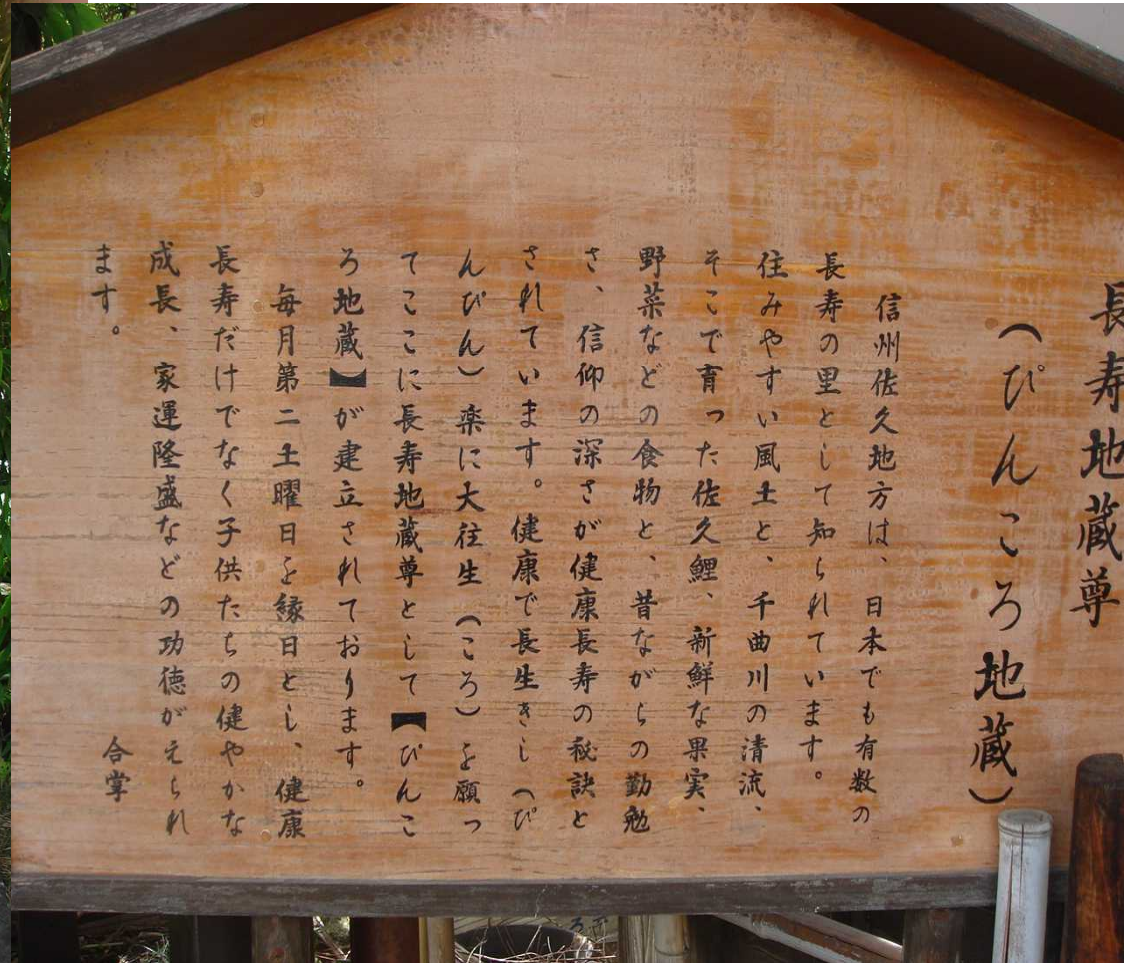 長寿地蔵尊
（ぴんころ地蔵）
信州佐久地方は、日本でも有数の
長寿の里として知られています。
住みやすい風土と、千曲川の清流、
そこで育った佐久鯉、新鮮な果実、
野菜などの食物と、昔ながらの勤勉
さ、信仰の深さが健康長寿の秘訣と
されています。健康で長生きし（ぴ
んぴん）楽に大往生（ころ）を願っ
てここに長寿地蔵尊として【ぴんこ
ろ地蔵】が建立されております。
毎月第二土曜日を縁日とし、健康
長寿だけでなく子供たちの健やかな
成長、家運隆盛などの功徳がえられ
ます。
合掌